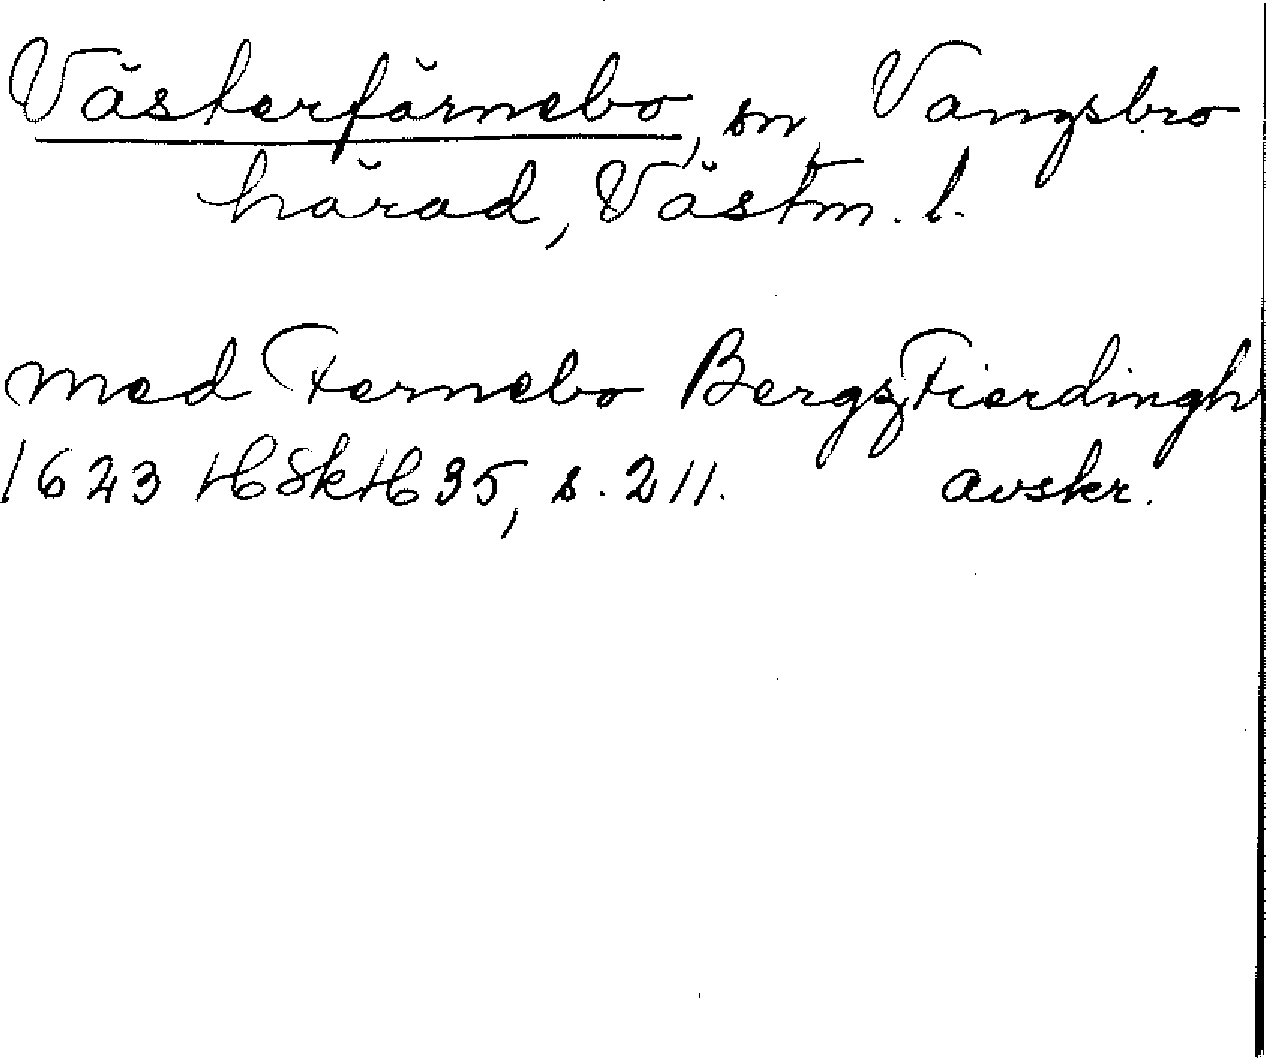 Västerfärnebo, sn, Vangsbro
härad, Västm. l.
med Fernebo Bergz Fierdingh
1623 HSkH 35, s. 211. avskr.